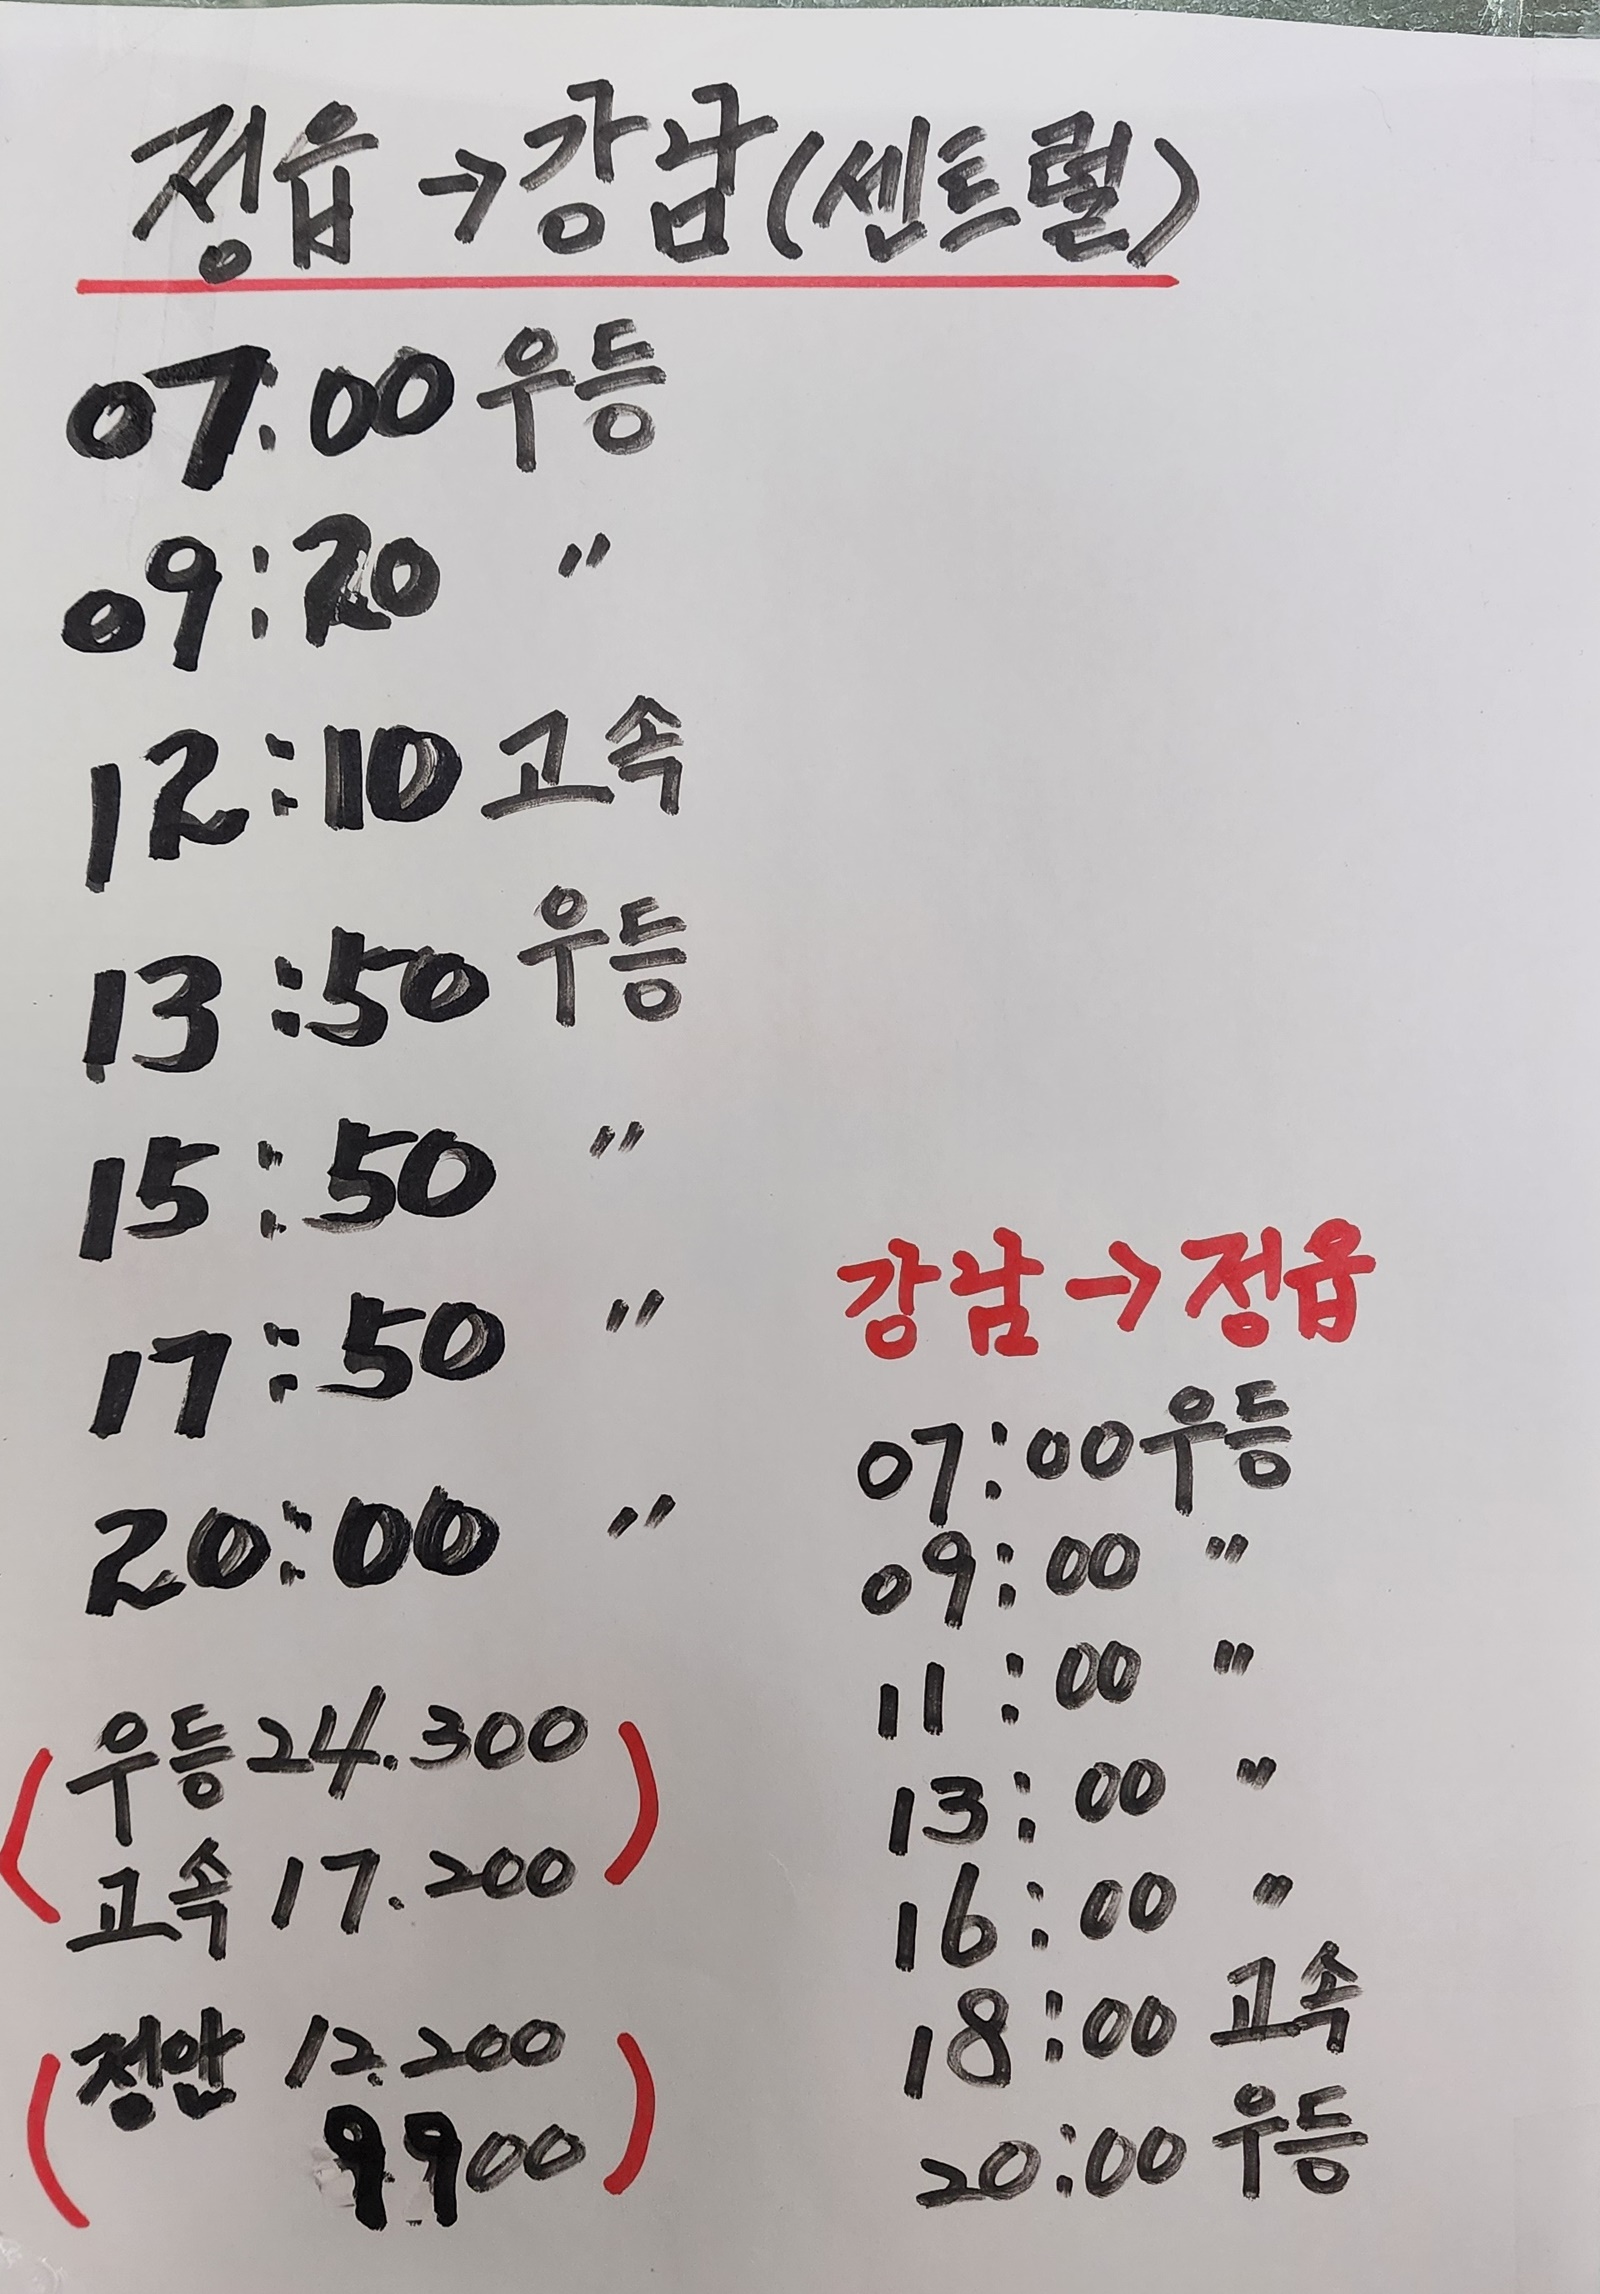 정읍 → 강남(센트럴)
07:00 우등
09:20 〃
12:10 고속
13:50 우등
15:50 〃
17:50 〃
20:00 〃
우등 24.300
고속 17.200
정안 12.200
9.900
강남 → 정읍
07:00 우등
09:00 〃
11:00 〃
13:00 〃
16:00 〃
18:00 고속
20:00 우등